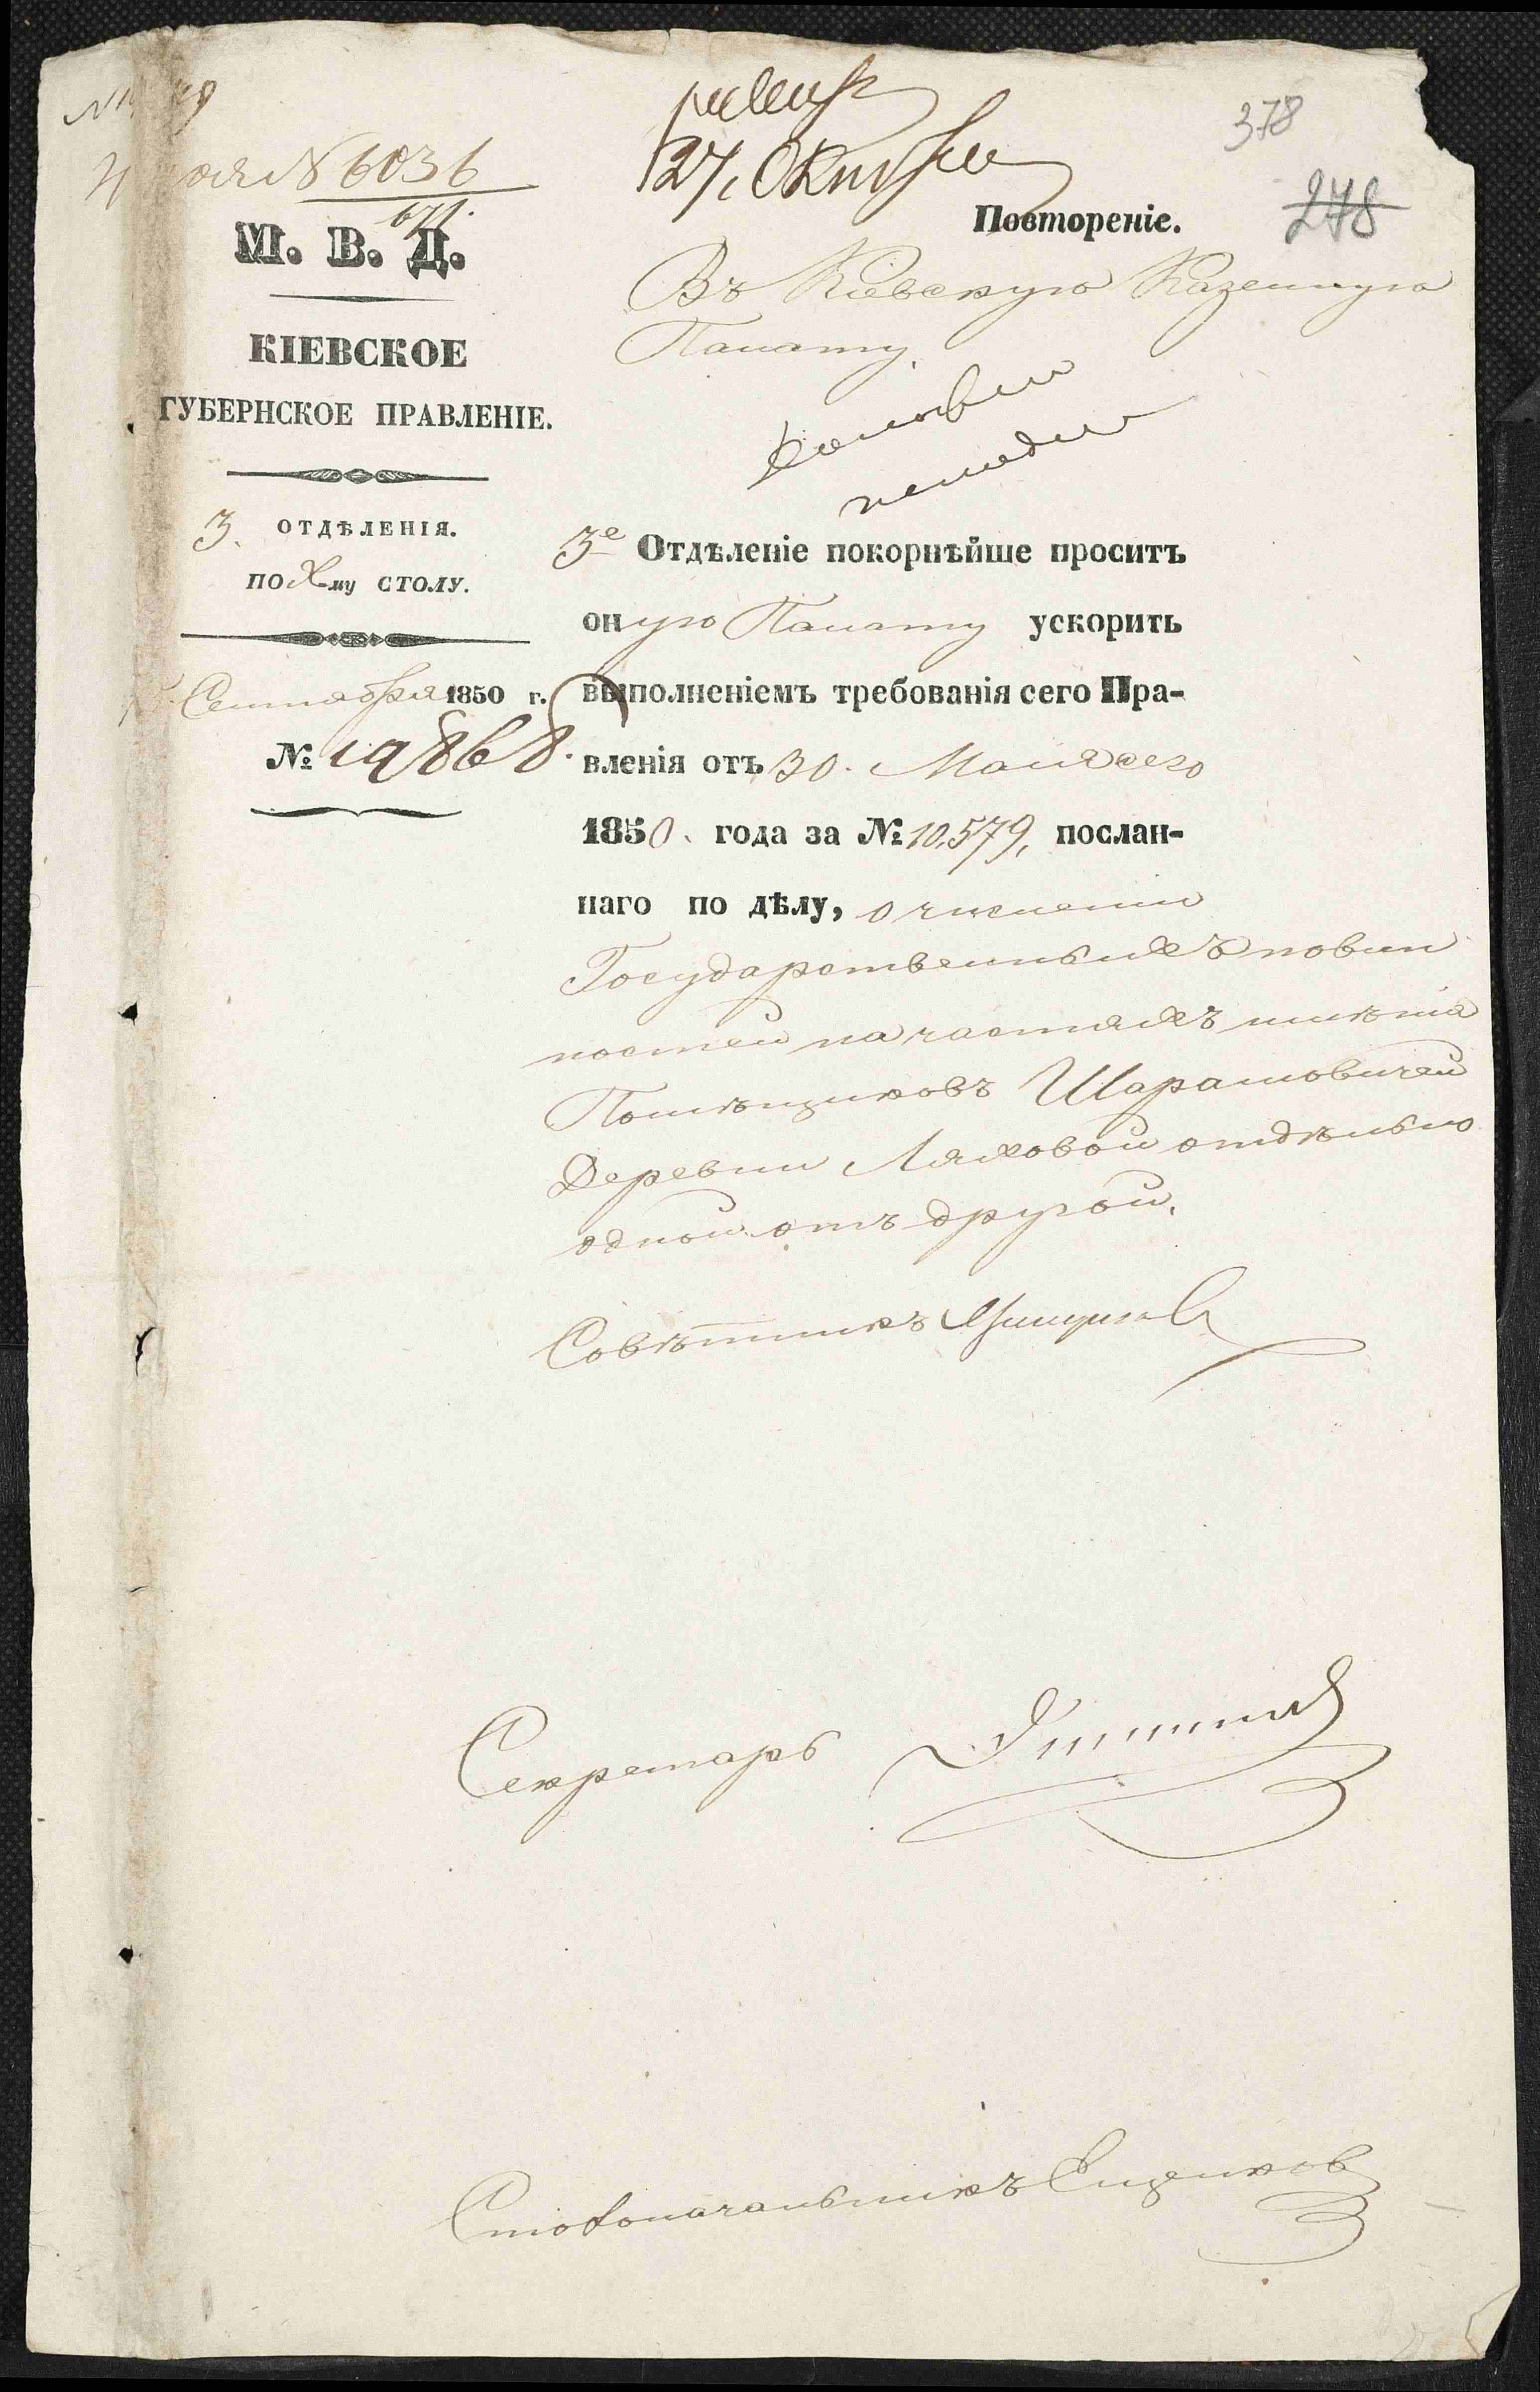 № 6036
671.
27. Октября
378
278
Повтореніе.
М. В. Д.
КІЕВСКОЕ
ГУБЕРНСКОЕ ПРАВЛЕНІЕ.
3. ОТДѢЛЕНІЯ.
ПО Х-му СТОЛУ.
Сентября 1850 г.
№ 19868.
Въ Кіевскую Казенную
Палату.
3е Отдѣленіе покорнѣйше проситъ
оную Палату ускорить
выполненіемъ требованія сего Пра-
вленія отъ 30. Маія сего
1850. года за № 10,579, послан-
наго по дѣлу, о численіи
Государственныхъ повин
ностей на частяхъ имѣнія
Помѣщиковъ Шарамовичей
Деревни Ляховой отдѣльно
одной отъ другой.
Совѣтникъ
Секретарь
Столоначальникъ Ещенков